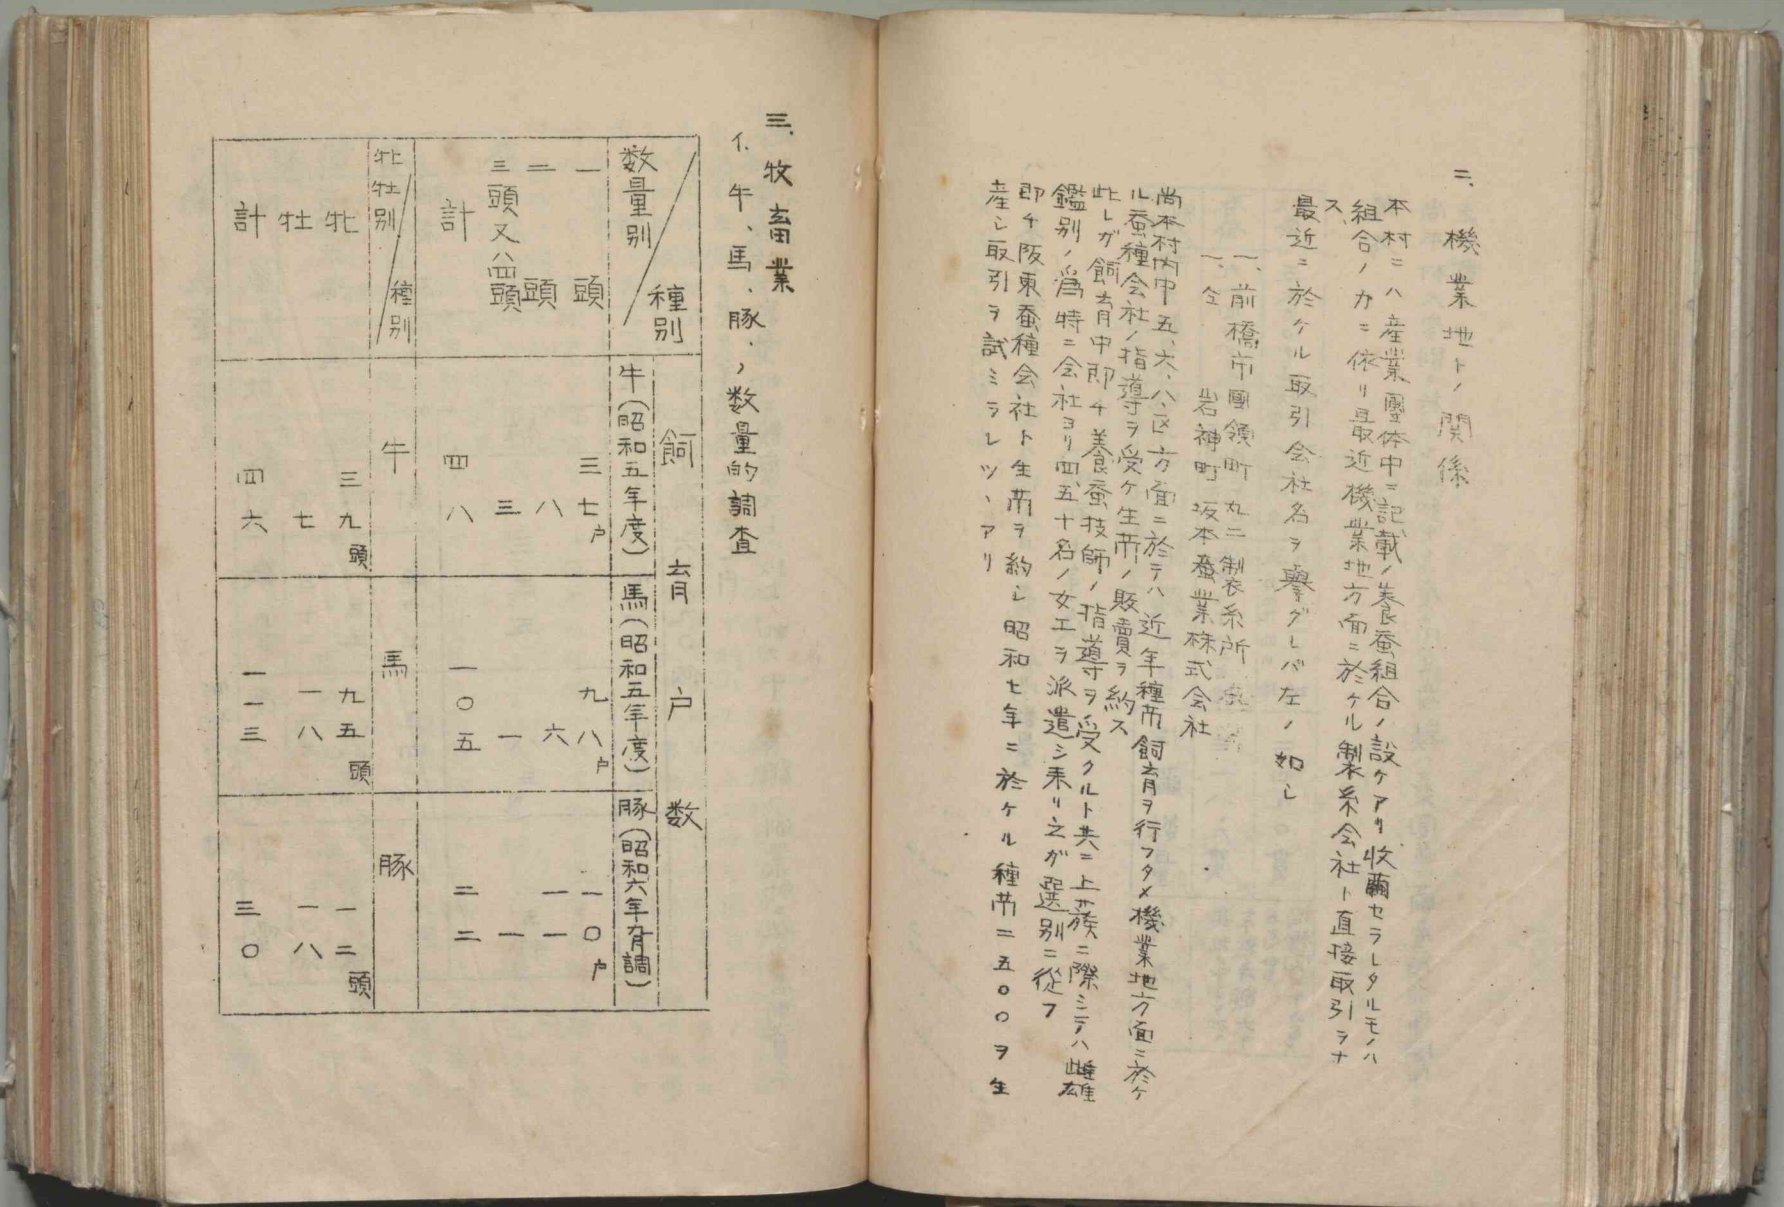 二、機業地トノ関係
本村ニハ産業團体中ニ記載ノ養蚕組合ノ設ケアリ收繭セラレタルモノハ
組合ノ力ニ依リ最近機業地方面ニ於ケル製糸会社ト直接取引ヲナ
ス、
最近ニ於ケル取引会社名ヲ擧グレバ左ノ如シ
一、前橋市國領町 丸二製糸所
一、仝 岩神町 坂本蚕業株式会社
尚本村内中五、六、八、区方面ニ於テハ近年種帋飼育ヲ行フタメ機業地方面ニ於ケ
ル蚕種会社ノ指導ヲ受ケ生帋ノ販賣ヲ約ス
此レガ飼育中即チ養蚕技師ノ指導ヲ受クルト共ニ上蔟ニ際シテハ雌雄
鑑別ノ為特ニ会社ヨリ四、五十名ノ女工ヲ派遣シ来リ之ガ選別ニ從フ
即チ阪東蚕種会社ト生帋ヲ約シ昭和七年ニ於ケル種帋二五〇〇ヲ生
産シ取引ヲ試ミラレツヽアリ
三、牧畜業
イ、牛、馬、豚、ノ数量的調査
種別 数量別
飼育戸数
牛(昭和五年度) 馬(昭和五年度) 豚(昭和六年度調)
一頭 三七戸 九八戸 一〇戸
二頭 八 六 一一
三頭又ハ四頭 三 一 一
計 四八 一〇五 二二
牝牡別 種別 牛 馬 豚
牝 三九頭 九五頭 一二頭
牡 七 一八 一八
計 四六 一一三 三〇